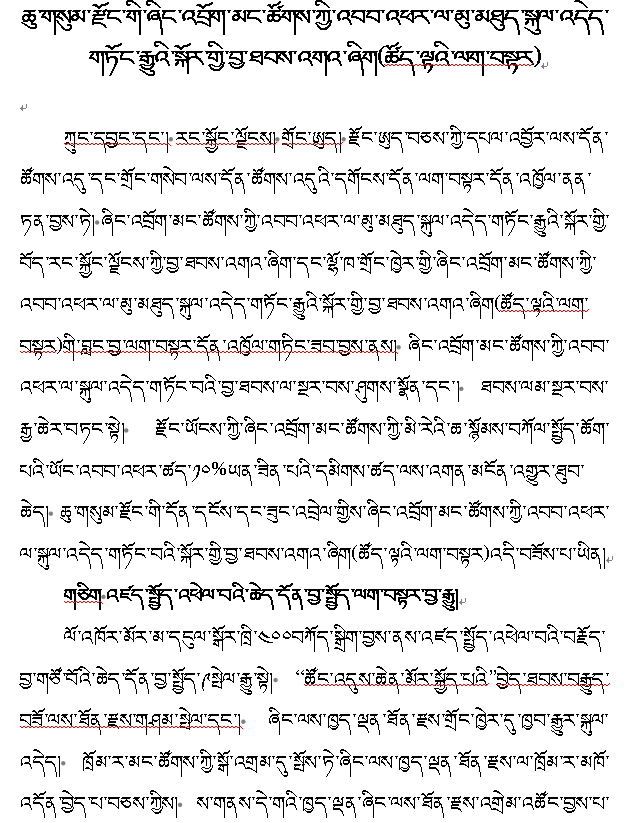 ཆུ་གསུམ་རྫོང་གི་ཞིང་འབྲོག་མང་ཚོགས་ཀྱི་འབབ་འཕར་ལ་མུ་མཐུད་སྐུལ་འདེད་
གཏོང་རྒྱུའི་སྐོར་གྱི་བྱ་ཐབས་འགའ་ཞིག(ཚོད་ལྟའི་ལག་བསྟར)
ཀྲུང་དབྱང་དང་། རང་སྐྱོང་ལྗོངས། གྲོང་ཨུད། རྫོང་ཨུད་བཅས་ཀྱི་དཔལ་འབྱོར་ལས་དོན་
ཚོགས་འདུ་དང་གྲོང་གསེབ་ལས་དོན་ཚོགས་འདུའི་དགོངས་དོན་ལག་བསྟར་དོན་འཁྱོལ་ནན་
ཏན་བྱས་ཏེ། ཞིང་འབྲོག་མང་ཚོགས་ཀྱི་འབབ་འཕར་ལ་མུ་མཐུད་སྐུལ་འདེད་གཏོང་རྒྱུའི་སྐོར་གྱི་
བོད་རང་སྐྱོང་ལྗོངས་ཀྱི་བྱ་ཐབས་འགའ་ཞིག་དང་ལྷོ་ཁ་གྲོང་ཁྱེར་གྱི་ཞིང་འབྲོག་མང་ཚོགས་ཀྱི་
འབབ་འཕར་ལ་མུ་མཐུད་སྐུལ་འདེད་གཏོང་རྒྱུའི་སྐོར་གྱི་བྱ་ཐབས་འགའ་ཞིག(ཚོད་ལྟའི་ལག་
བསྟར)གི་བླང་བྱ་ལག་བསྟར་དོན་འཁྱོལ་གཏིང་ཟབ་བྱས་ནས། ཞིང་འབྲོག་མང་ཚོགས་ཀྱི་འབབ་
འཕར་ལ་སྐུལ་འདེད་གཏོང་བའི་བྱ་ཐབས་ལ་སྔར་བས་ཤུགས་སྣོན་དང་། ཐབས་ལམ་སྔར་བས་
རྒྱ་ཆེར་བཏང་སྟེ། རྫོང་ཡོངས་ཀྱི་ཞིང་འབྲོག་མང་ཚོགས་ཀྱི་མི་རེའི་ཆ་སྙོམས་བཀོལ་སྤྱོད་ཆོག་
པའི་ཡོང་འབབ་འཕར་ཚད་༡༠%ཡན་ཟིན་པའི་དམིགས་ཚད་ལས་འགན་མངོན་འགྱུར་ཐུབ་
ཆེད། ཆུ་གསུམ་རྫོང་གི་དོན་དངོས་དང་ཟུང་འབྲེལ་གྱིས་ཞིང་འབྲོག་མང་ཚོགས་ཀྱི་འབབ་འཕར་
ལ་སྐུལ་འདེད་གཏོང་བའི་སྐོར་གྱི་བྱ་ཐབས་འགའ་ཞིག(ཚོད་ལྟའི་ལག་བསྟར)འདི་བཟོས་པ་ཡིན།
གཅིག འཛད་སྤྱོད་འཕེལ་བའི་ཆེད་དོན་བྱ་སྤྱོད་ལག་བསྟར་བྱ་རྒྱུ།
ལོ་འཁོར་མོར་མ་དངུལ་སྒོར་ཁྲི་༤༠༠བཀོད་སྒྲིག་བྱས་ནས་འཛད་སྤྱོད་འཕེལ་བའི་བརྗོད་
བྱ་གཙོ་བོའི་ཆེད་དོན་བྱ་སྤྱོད་༩སྤེལ་རྒྱུ་སྟེ། “ཚོང་འདུས་ཆེན་མོར་སྐྱོད་པའི”བྱེད་ཐབས་བརྒྱུད་
བཟོ་ལས་ཐོན་རྫས་གཤམ་སྤེལ་དང་། ཞིང་ལས་ཁྱད་ལྡན་ཐོན་རྫས་གྲོང་ཁྱེར་དུ་ཁྱབ་རྒྱུར་སྐུལ་
འདེད། ཁྲོམ་ར་མང་ཚོགས་ཀྱི་སྒོ་འགྲམ་དུ་སྤོས་ཏེ་ཞིང་ལས་ཁྱད་ལྡན་ཐོན་རྫས་ལ་ཁྲོམ་ར་མཁོ་
འདོན་བྱེད་པ་བཅས་ཀྱིས། ས་གནས་དེ་གའི་ཁྱད་ལྡན་ཞིང་ལས་ཐོན་རྫས་འགྲེམ་འཚོང་བྱས་པ་